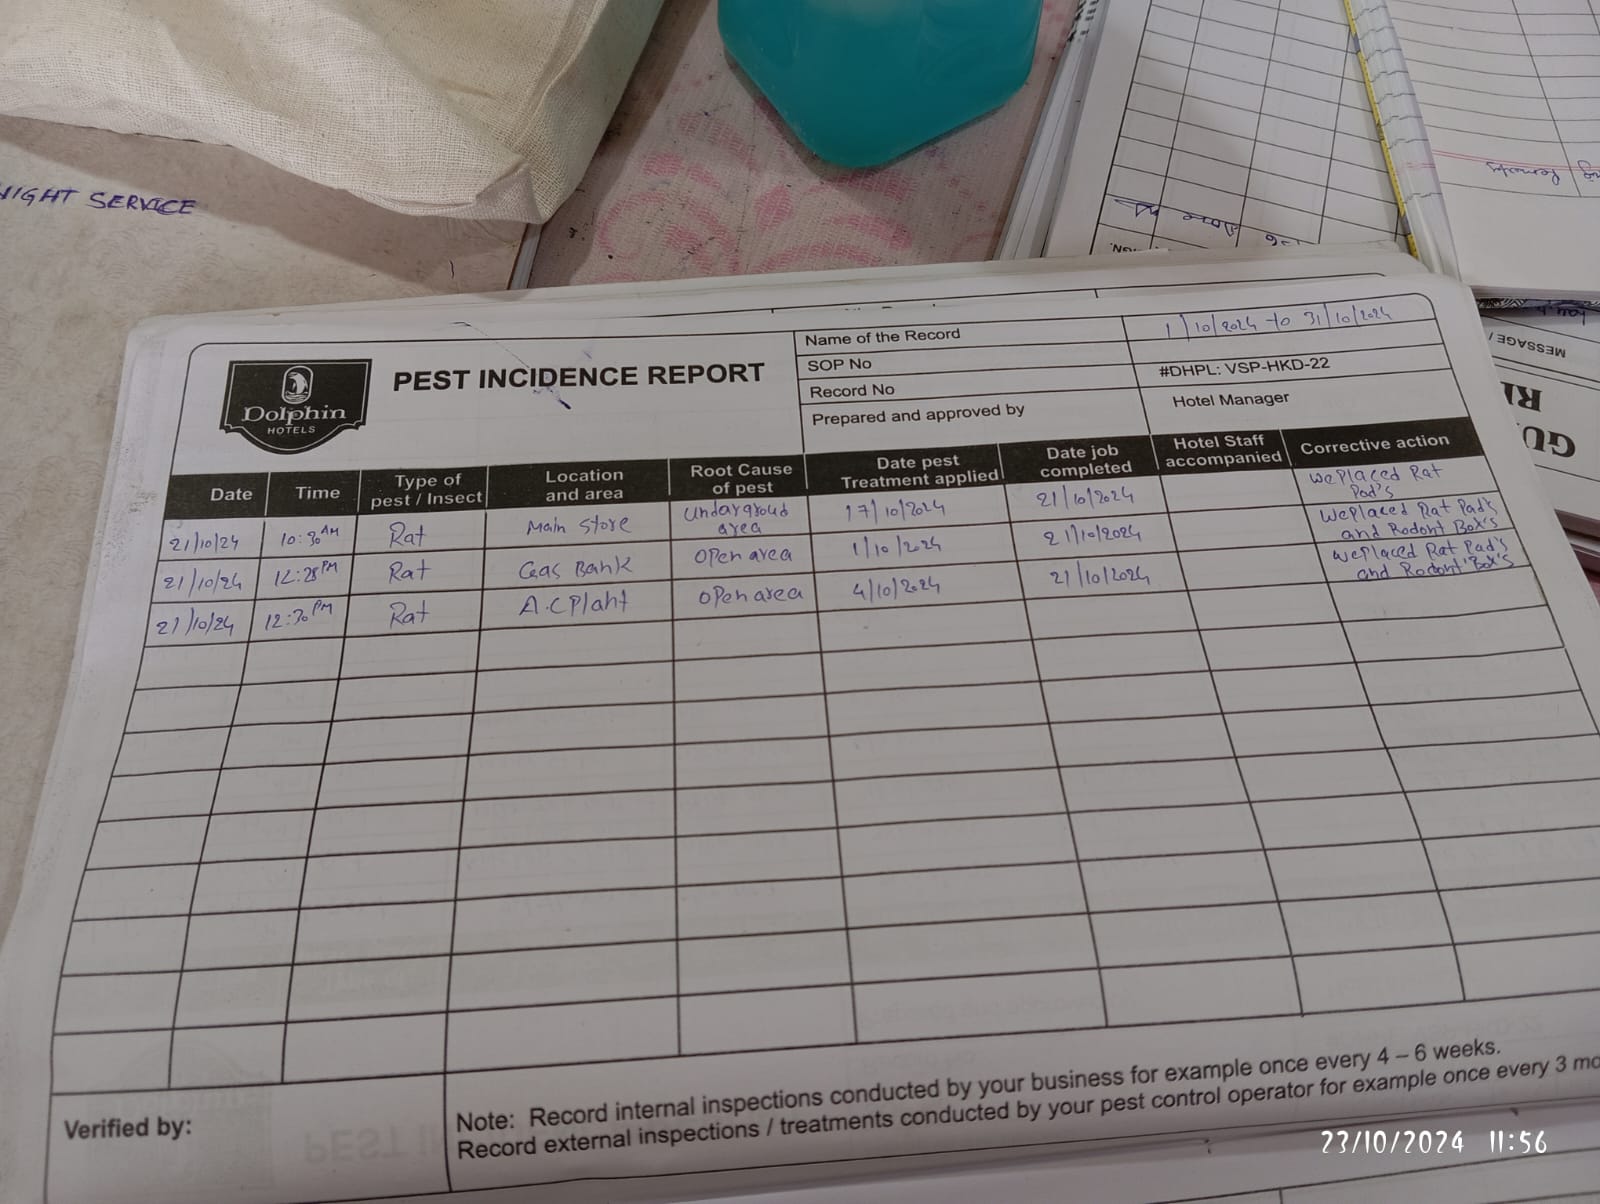 NIGHT SERVICE
Dolphin
HOTELS
PEST INCIDENCE REPORT
Name of the Record
1/10/2024 to 31/10/2024
SOP No
Record No
#DHPL: VSP-HKD-22
Prepared and approved by
Hotel Manager
Date Time Type of pest / Insect Location and area Root Cause of pest Date pest Treatment applied Date job completed Hotel Staff accompanied Corrective action
21/10/24 10:30 AM Rat Main Store Undargroud area 17/10/2024 21/10/2024 weplaced Rat Pad's
21/10/24 12:28 PM Rat Gas Bank Open area 1/10/2024 21/10/2024 weplaced Rat Pad's and Rodont Box's
21/10/24 12:30 PM Rat A.C Plaht Open area 4/10/2024 21/10/2024 weplaced Rat Pad's and Rodont Box's
Verified by:
Note: Record internal inspections conducted by your business for example once every 4 – 6 weeks.
Record external inspections / treatments conducted by your pest control operator for example once every 3 mo
MESSAGE /
GU
RI
23/10/2024 11:56